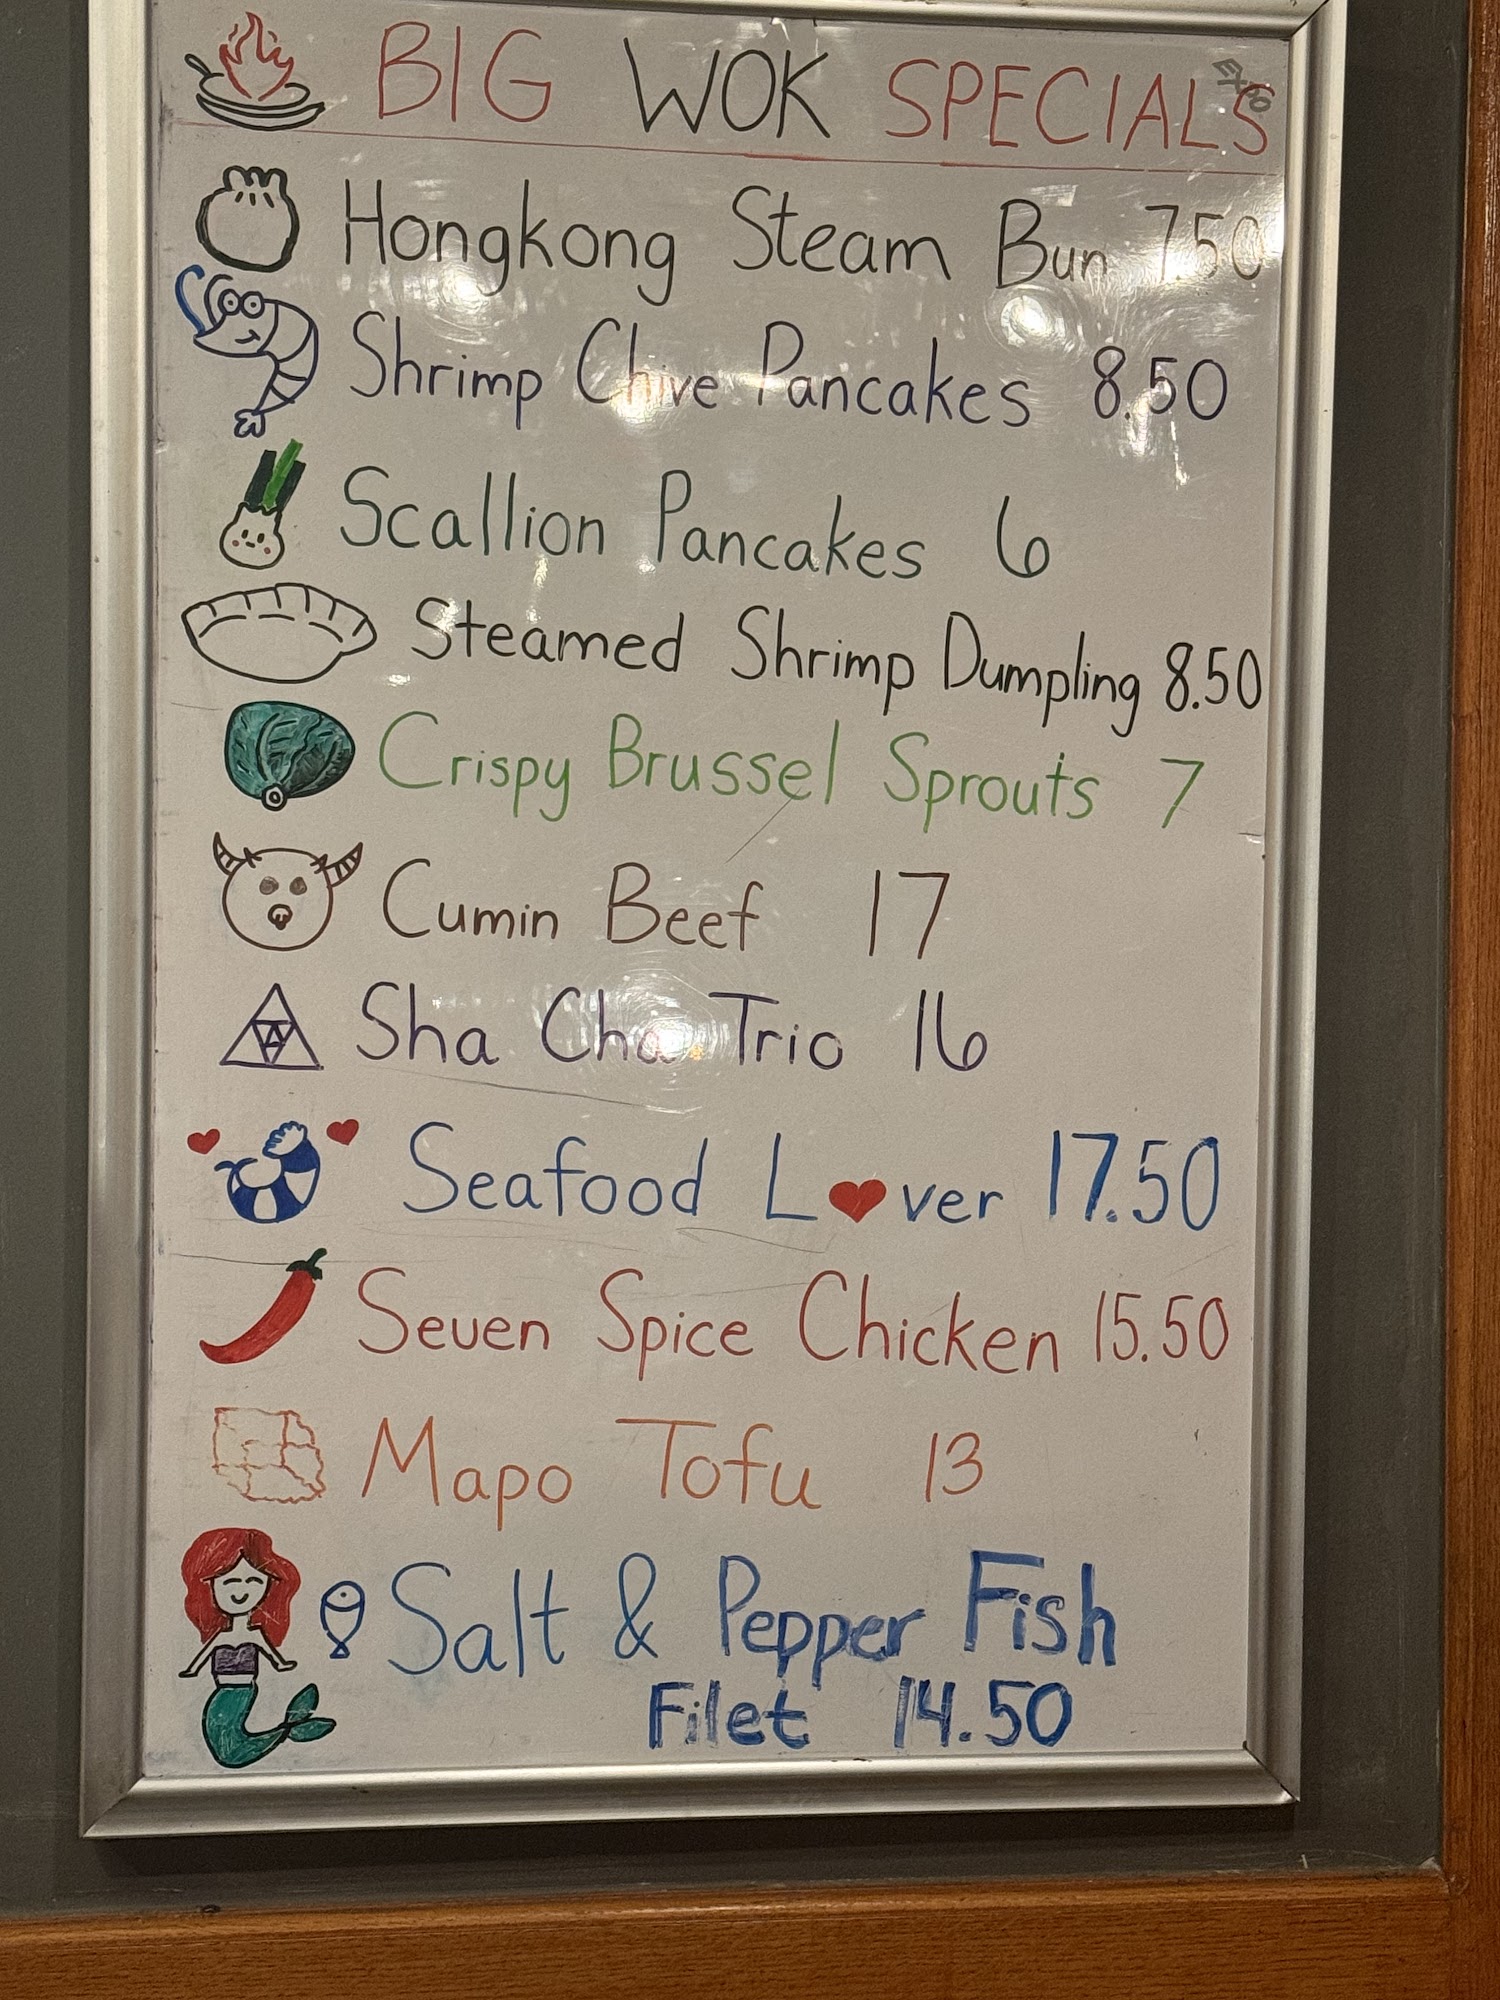 BIG WOK SPECIALS
EXPO
Hongkong Steam Bun 7.50
Shrimp Chive Pancakes 8.50
Scallion Pancakes 6
Steamed Shrimp Dumpling 8.50
Crispy Brussel Sprouts 7
Cumin Beef 17
Sha Cha Trio 16
Seafood L❤ver 17.50
Seven Spice Chicken 15.50
Mapo Tofu 13
Salt & Pepper Fish
Filet 14.50